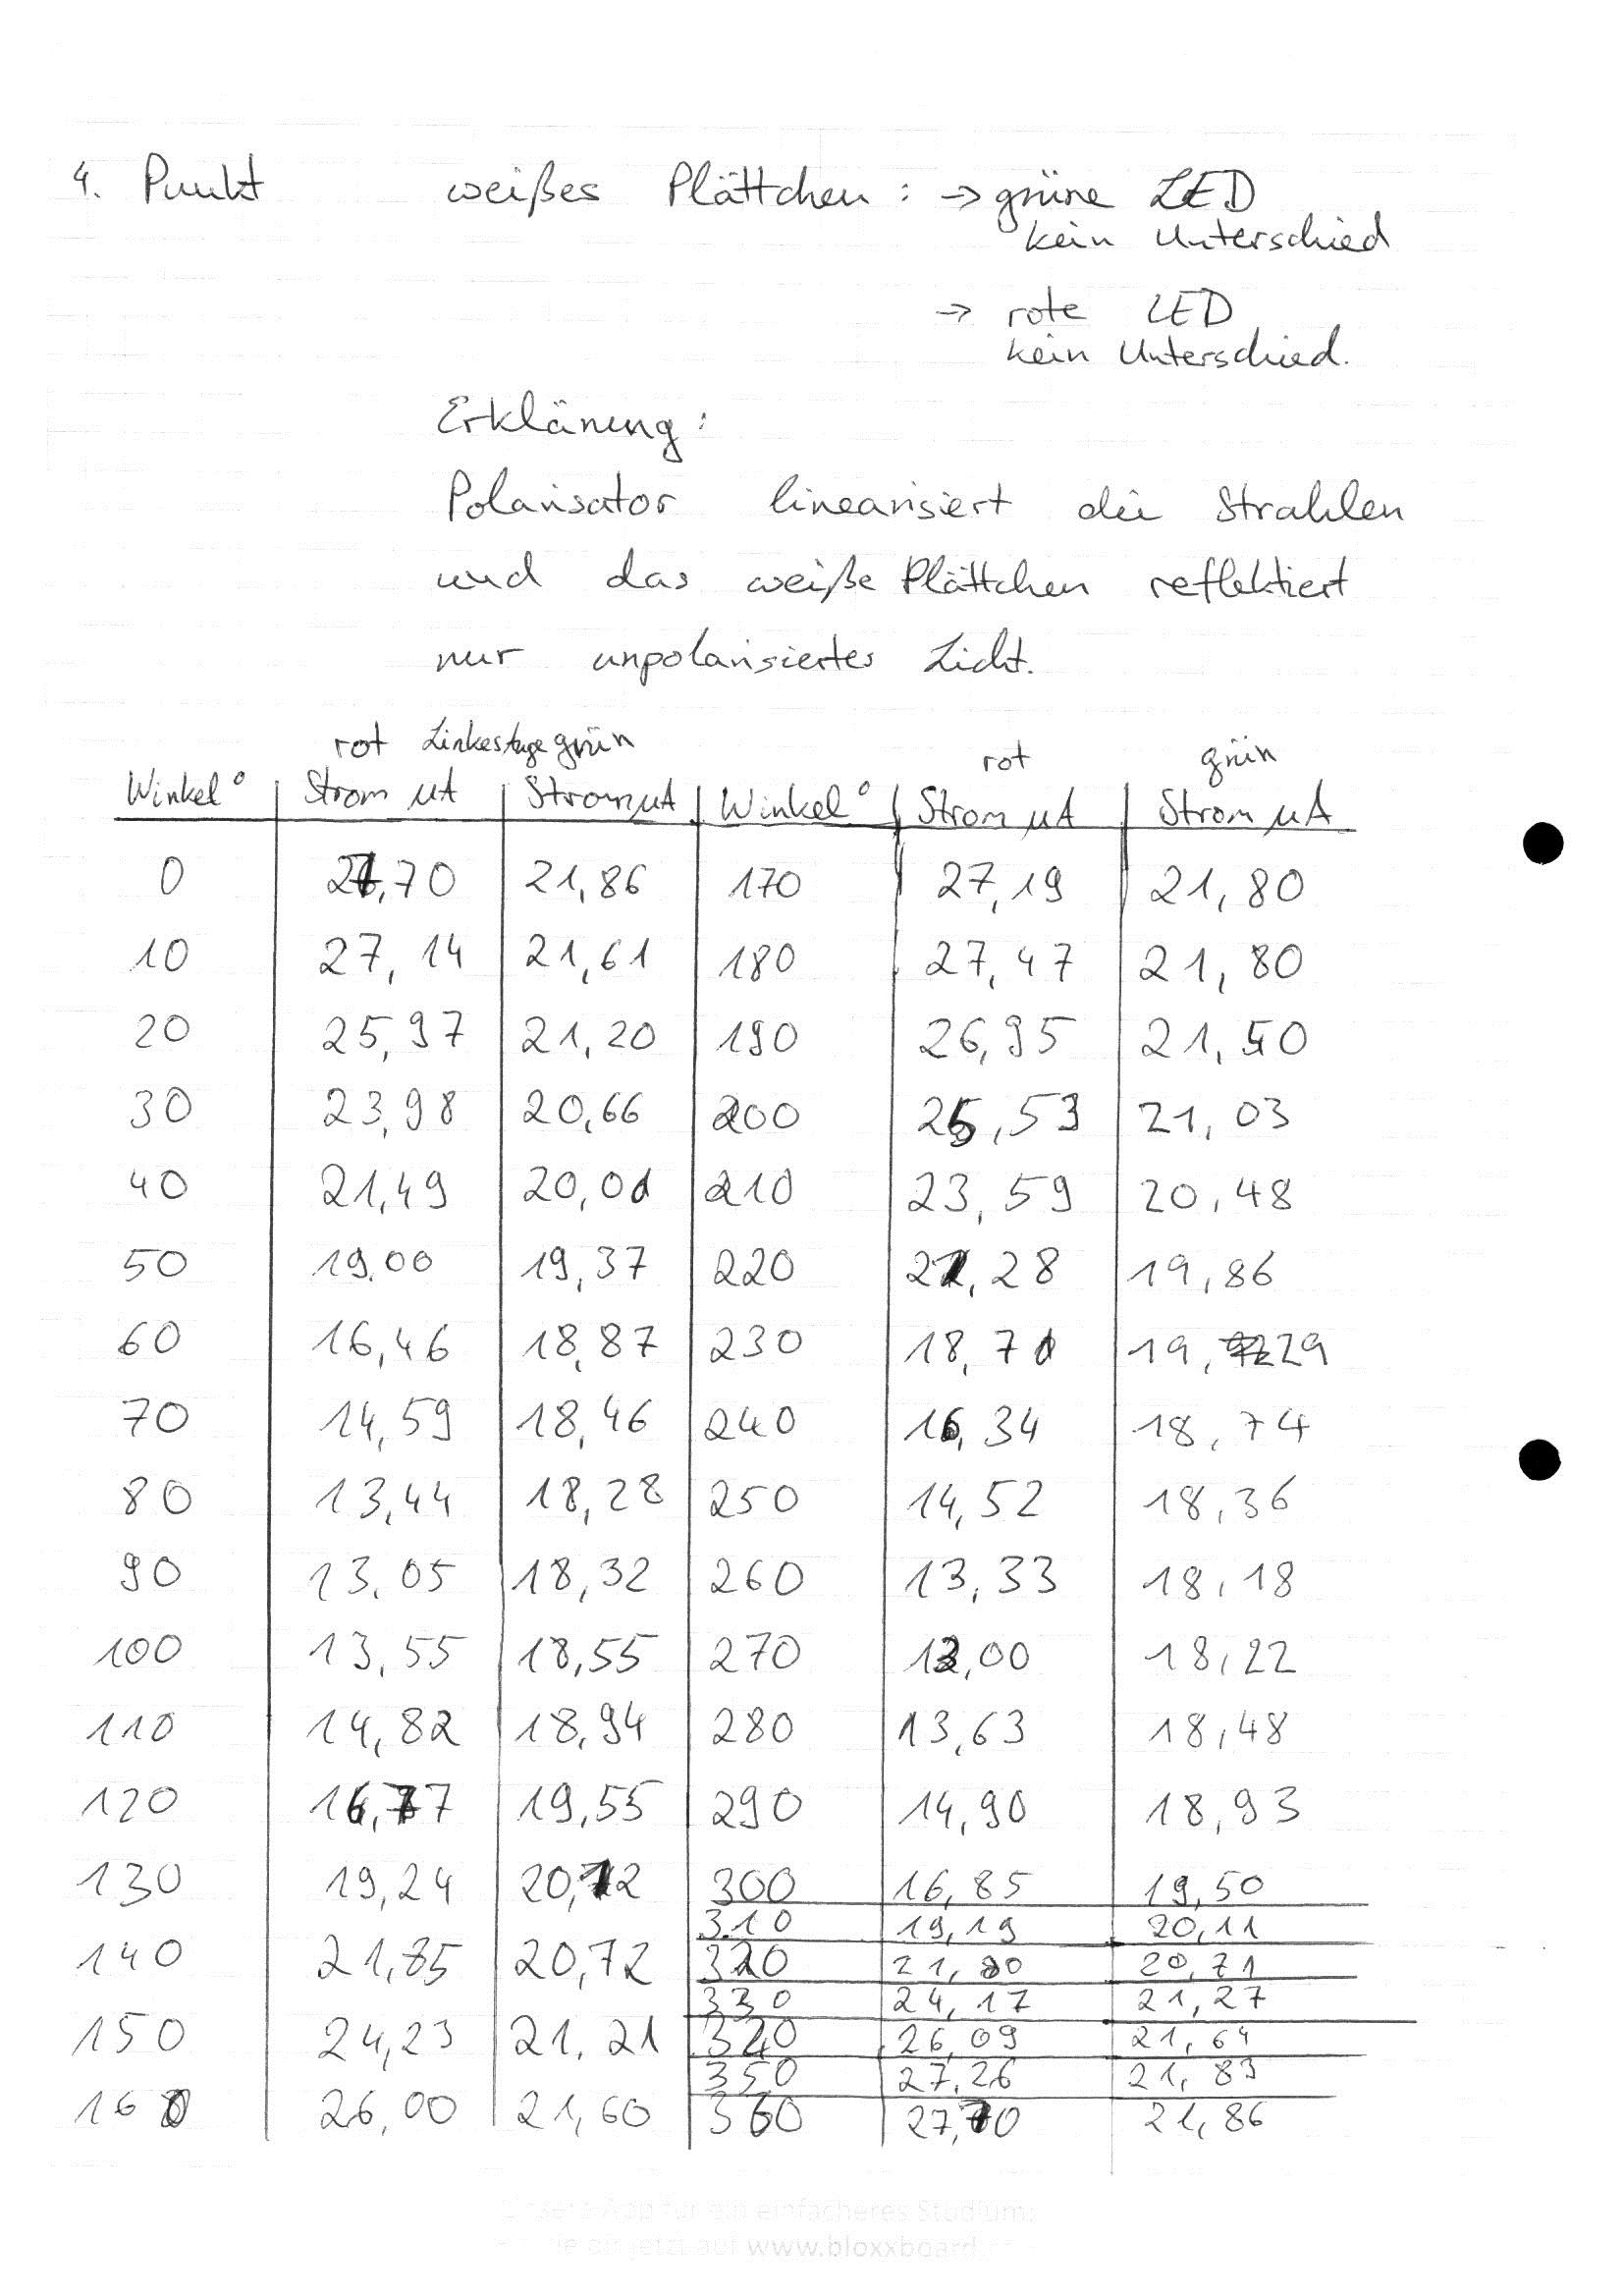 4. Punkt weißes Plättchen: → grüne LED
kein Unterschied
→ rote LED
kein Unterschied.
Erklärung:
Polarisator linearisiert die Strahlen
und das weiße Plättchen reflektiert
nur unpolarisiertes Licht.
rot grün rot grün
Winkel° Strom µA Strom µA Winkel° Strom µA Strom µA
0 27,70 21,86 170 27,19 21,80
10 27,14 21,61 180 27,47 21,80
20 25,97 21,20 190 26,95 21,50
30 23,98 20,66 200 25,53 21,03
40 21,49 20,01 210 23,59 20,48
50 19.00 19,37 220 21,28 19,86
60 16,46 18,87 230 18,71 19,29
70 14,59 18,46 240 16,34 18,74
80 13,44 18,28 250 14,52 18,36
90 13,05 18,32 260 13,33 18,18
100 13,55 18,55 270 13,00 18,22
110 14,82 18,94 280 13,63 18,48
120 16,77 19,55 290 14,90 18,93
130 19,24 20,12 300 16,85 19,50
310 19,19 20,11
140 21,85 20,72 320 21,80 20,71
330 24,17 21,27
150 24,23 21,21 340 26,09 21,64
350 27,26 21,83
160 26,00 21,60 360 27,70 21,86
App für ein einfacheres Studium:
jetzt auf www.bloxxboard